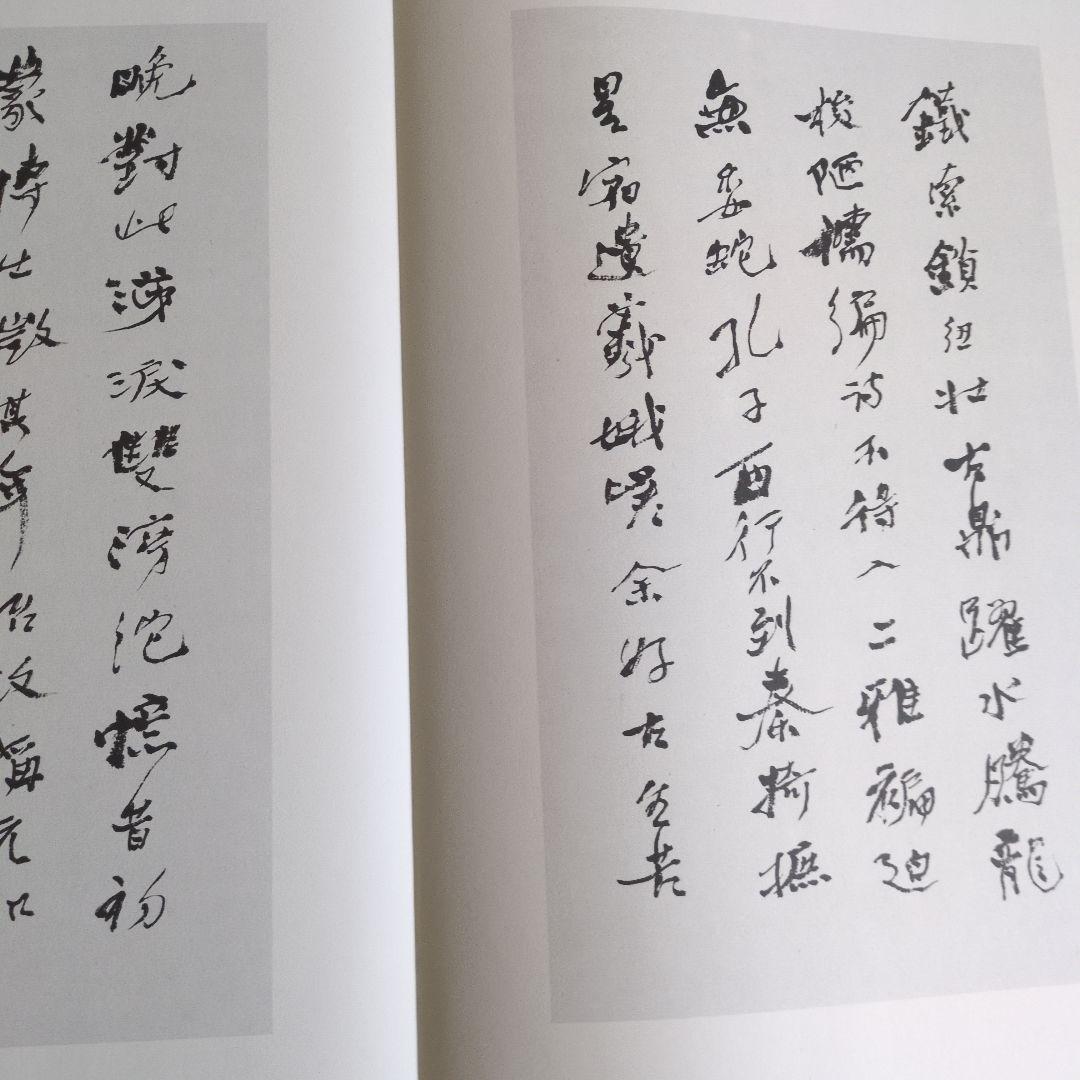 鐵索鎖紐壯古鼎躍水騰龍
梭陋儒編詩不得入二雅褊迫
無委蛇孔子西行不到秦掎摭
星宿遺羲娥嗟余好古生苦
晚對此涕淚雙滂沱憶昔初
蒙博士徵其年始改稱元